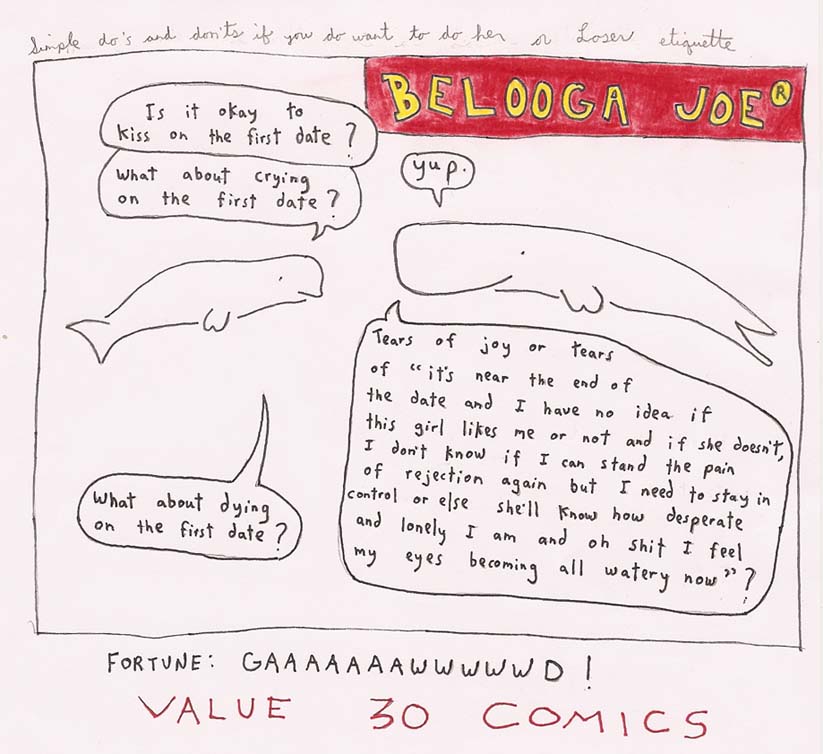 Simple do's and don'ts if you do want to do her or Loser etiquette
BELOOGA JOE®
Is it okay to
kiss on the first date?
What about crying
on the first date?
yup.
Tears of joy or tears
of “it's near the end of
the date and I have no idea if
this girl likes me or not and if she doesn't,
I don't know if I can stand the pain
of rejection again but I need to stay in
control or else she'll know how desperate
and lonely I am and oh shit I feel
my eyes becoming all watery now”?
What about dying
on the first date?
FORTUNE: GAAAAAAAWWWWWD!
VALUE 30 COMICS